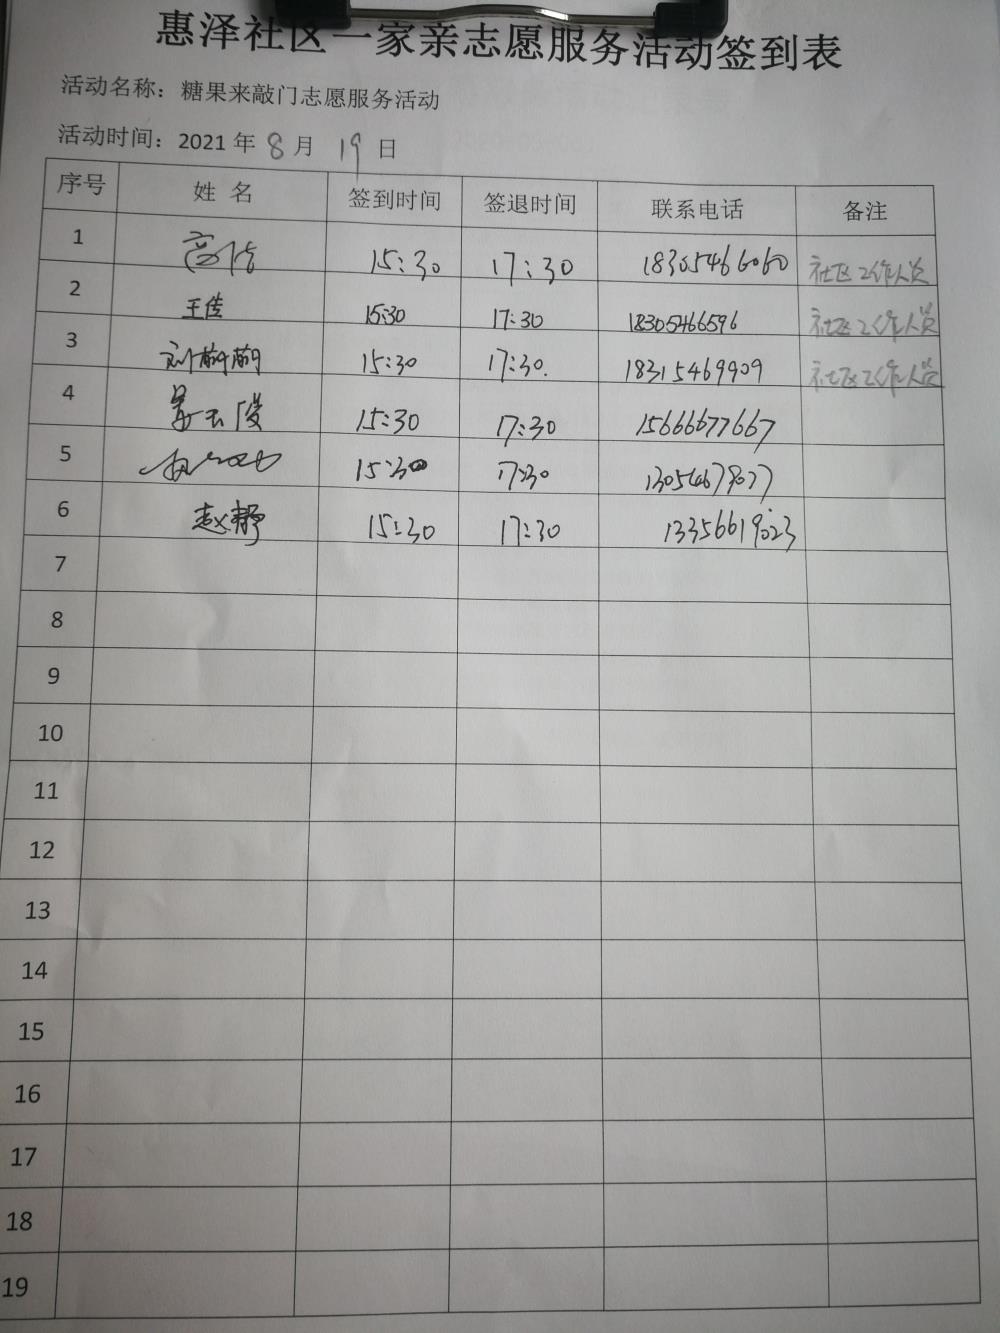 惠泽社区一家亲志愿服务活动签到表
活动名称：糖果来敲门志愿服务活动
活动时间：2021 年 8 月 19 日
序号 姓 名 签到时间 签退时间 联系电话 备注
1 15:30 17:30 18305466060 社区工作人员
2 王佳 15:30 17:30 18305466596 社区工作人员
3 15:30 17:30. 18315469909 社区工作人员
4 15:30 17:30 15666677667
5 15:30 17:30
6 赵静 15:30 17:30 13356619023
7
8
9
10
11
12
13
14
15
16
17
18
19